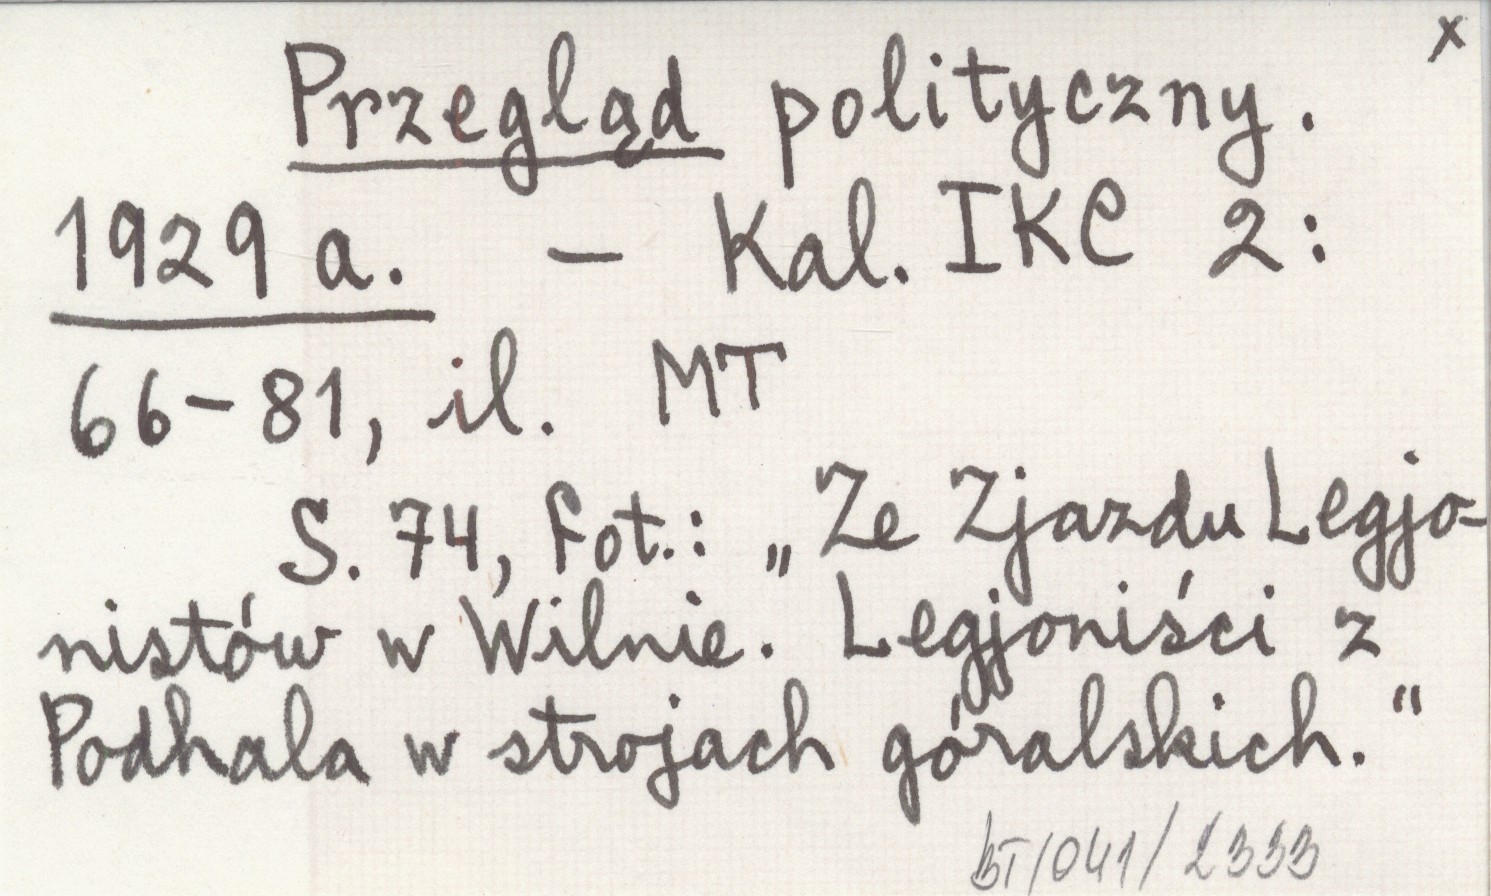 x
Przegląd polityczny.
1929 a. – Kal. IKC 2:
66–81, il. MT
S. 74, fot.: „Ze Zjazdu Legjo-
nistów w Wilnie. Legjoniści z
Podhala w strojach góralskich."
BT/041/2333